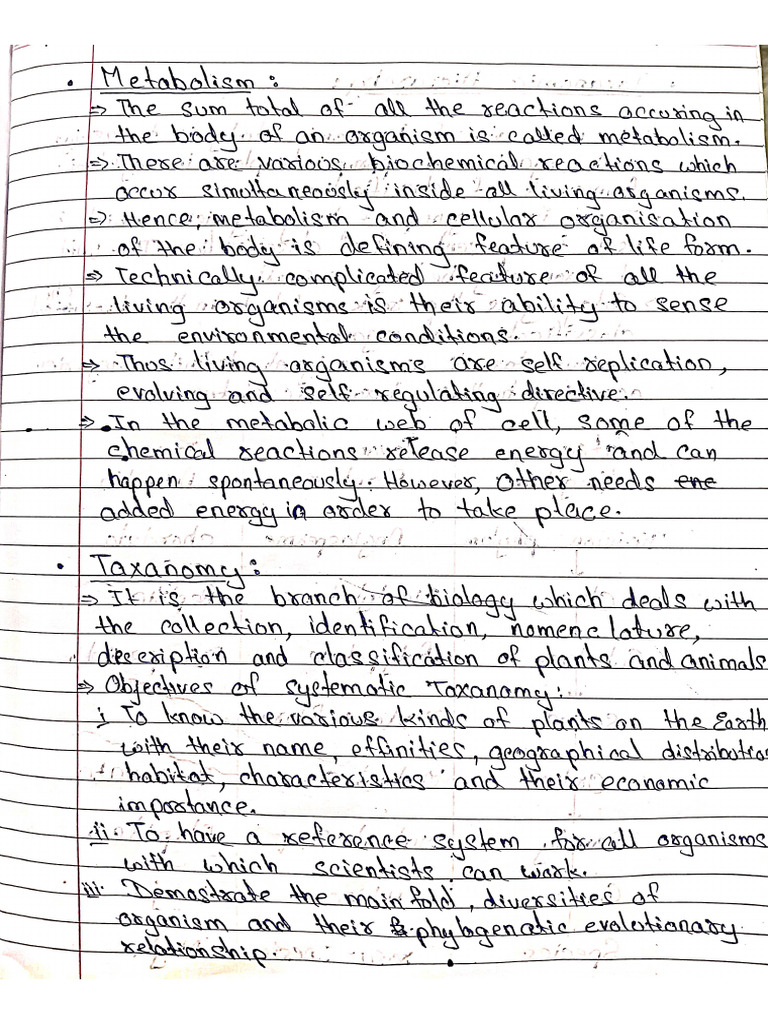 • Metabolism :
⇒ The sum total of all the reactions occuring in
the body of an organism is called metabolism.
⇒ There are various biochemical reactions which
occur simultaneously inside all living organisms.
⇒ Hence, metabolism and cellular organisation
of the body is defining feature of life form.
⇒ Technically complicated feature of all the
living organisms is their ability to sense
the environmental conditions.
⇒ Thus living organisms are self replication,
evolving and self regulating directive.
⇒ In the metabolic web of cell, some of the
chemical reactions release energy and can
happen spontaneously. However, other needs ene
added energy in order to take place.
• Taxanomy :
⇒ It is the branch of biology which deals with
the collection, identification, nomenclature,
description and classification of plants and animals
⇒ Objectives of systematic Taxanamy :
i To know the various kinds of plants on the Earth
with their name, effinities, geographical distributio
habitat, characteristics and their economic
importance.
ii. To have a reference system for all organisms
with which scientists can work.
iii. Demostrate the main fold, diversities of
organism and their phylogenatic evolutionary
relationship.